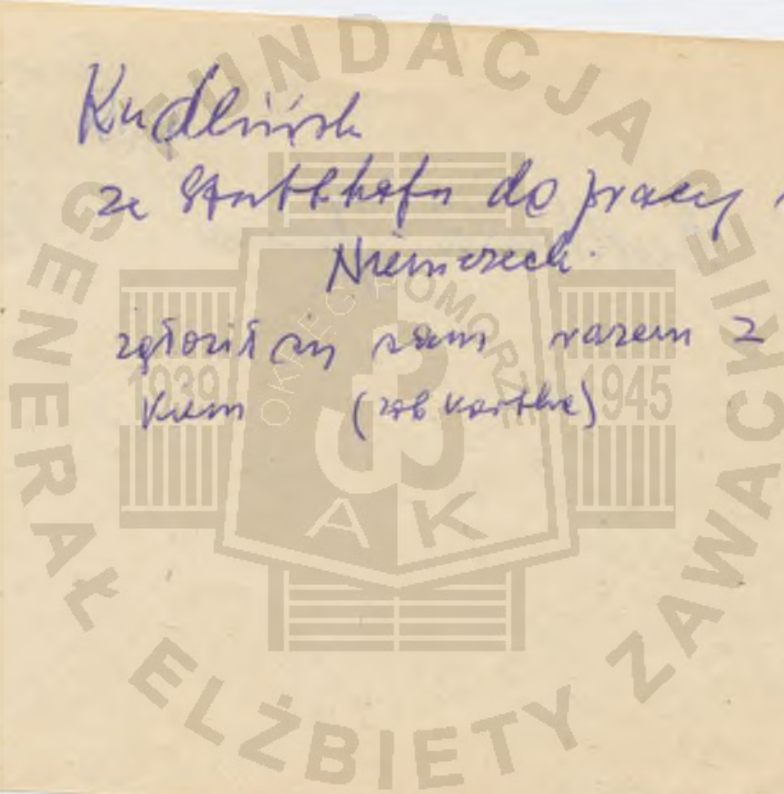 Kudliński
ze Stutthofu do pracy
Niemczech.
zgłosił się sam razem z
Kum (zob kartkę)
FUNDACJA GENERAŁ ELŻBIETY ZAWACKIEJ
OKRĘG POMORZE
1939 1945
AK